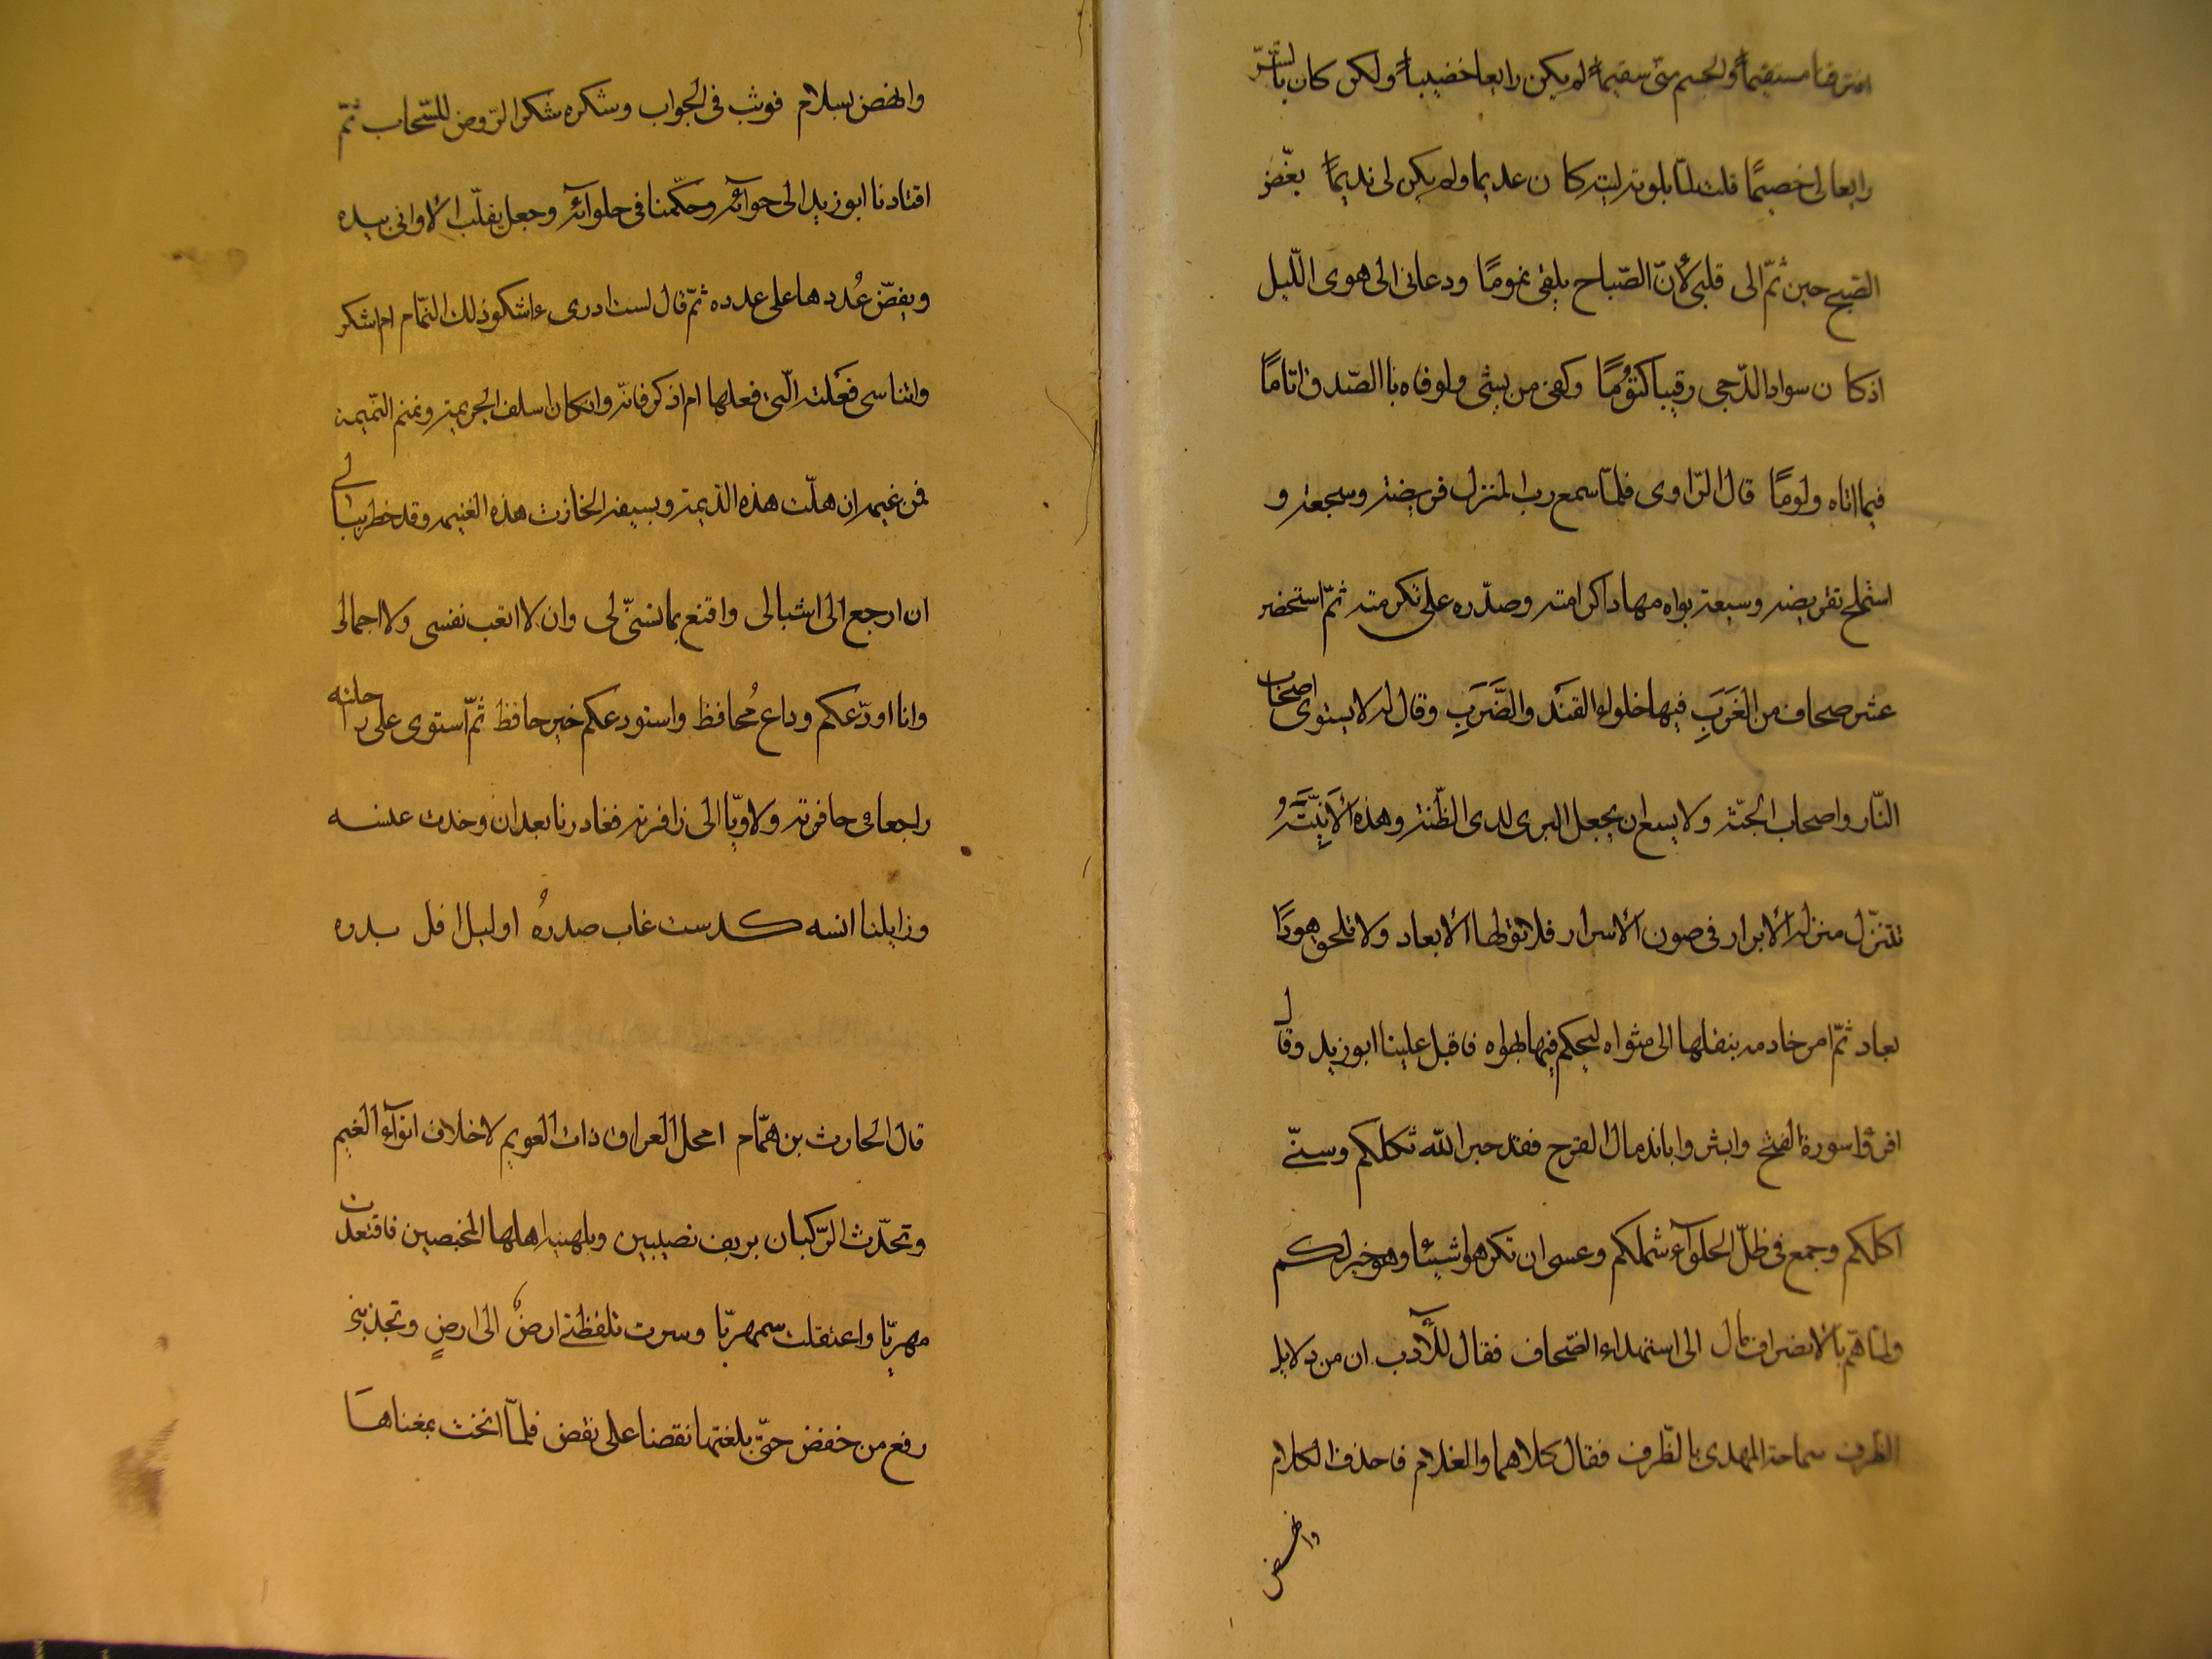 افترقنا مستقيماً والجسم منّى سقيماً لم يكن رايعا خضيباً ولكن كان بالشرّ
رايعا لى خصيمًا قلت لمّا بلوته ليته كا ن عديما ولم يكن لى نديمًا بغّض
الصّبح حين نمّ الى قلبى لأنّ الصّباح يلفى نمومًا ودعانى الى هوى اللّيل
اذ كا ن سواد الدّجى رقيبا كتومًا وكفى من يشى ولو فاه بالصّدق اثامًا
فيما اتاه ولومًا قال الرّاوى فلمّا سمع رب المنزل قريضته وسجعته و
استملح تقريضه وسبعه بواه مهاد اكرامته وصدّره على تكرمته ثمّ استحضر
عشر صحاف من الغَرَبِ فيها خلواء القند والضَّرَبِ وقال له لا يستوى اصحاب
النّار واصحاب الجنّة ولا يسع ان يجعل البرى لدى الظّنة وهذه الآنِيَةُ
تتنزّل منزلة الأبرار فى صون الأسرار فلا تولها الأبعاد ولا تلحق هودًا
بعاد ثمّ امر خادمه بنقلها الى مثواه ليحكم فيها بهواه فاقبل علينا ابوزيد وقال
اقرؤا سورة الفتح وابشروا باندمال القرح فقد جبر الله ثكلكم وسنّى
اكلكم وجمع فى ظلّ الحلوآء شملكم وعسى ان تكرهوا شيئا وهو خير لكم
ولمّا همّ بالأنصراف مال الى استهداء الصّحاف فقال للآدب ان من دلايل
الظّرف سماحة المهدى بالظّرف فقال كلاهما والغلام فاحذف الكلام
وانهض
وانهض بسلام فوثب فى الجواب وشكره شكر الرّوض للسّحاب ثمّ
اقتادنا ابوزيد الى حوآئه وحكّمنا فى حلوآئه وجعل يقلّب الأوانى بيده
ويفضّ عُددها على عدده ثمّ قال لست ادرى ءاشكو ذلك النّمّام ام اشكر
واتناسى فعَلته الّتى فعلها ام اذكر فانّه وان كان اسلف الجريمة ونمنم النّميمة
فمن غيمه ان هلّت هذه الدّيمة وبسيفه انحازت هذه الغنيمه وقد خطر ببالى
ان ارجع الى اشبالى واقنع بما تسنّى لى وان لا اتعب نفسى ولا اجمالى
وانا اودّعكم وداع مُحافظ واستودعكم خير حافظ ثمّ استوى على راحلته
راجعا فى حافرته ولاويّا الى زافرته فغادرنا بعد ان وخدت عنسه
وزايلنا انسه كدست غاب صدرهُ او ليل افل بدره
قال الحارث بن همّام امحل العراق ذات العويم لاخلاف انوآء الغيم
وتحدّث الرّكبان بريف نصيبين وبلهنية اهلها المخصبين فاقتعدت
مهريّا واعتقلت سمهريّا وسرت تلفظنى ارضٌ الى ارضٍ وتجذبنى
رفع من خفض حتّى بلغتها نقضا على نقض فلمّا انخت بمغناها